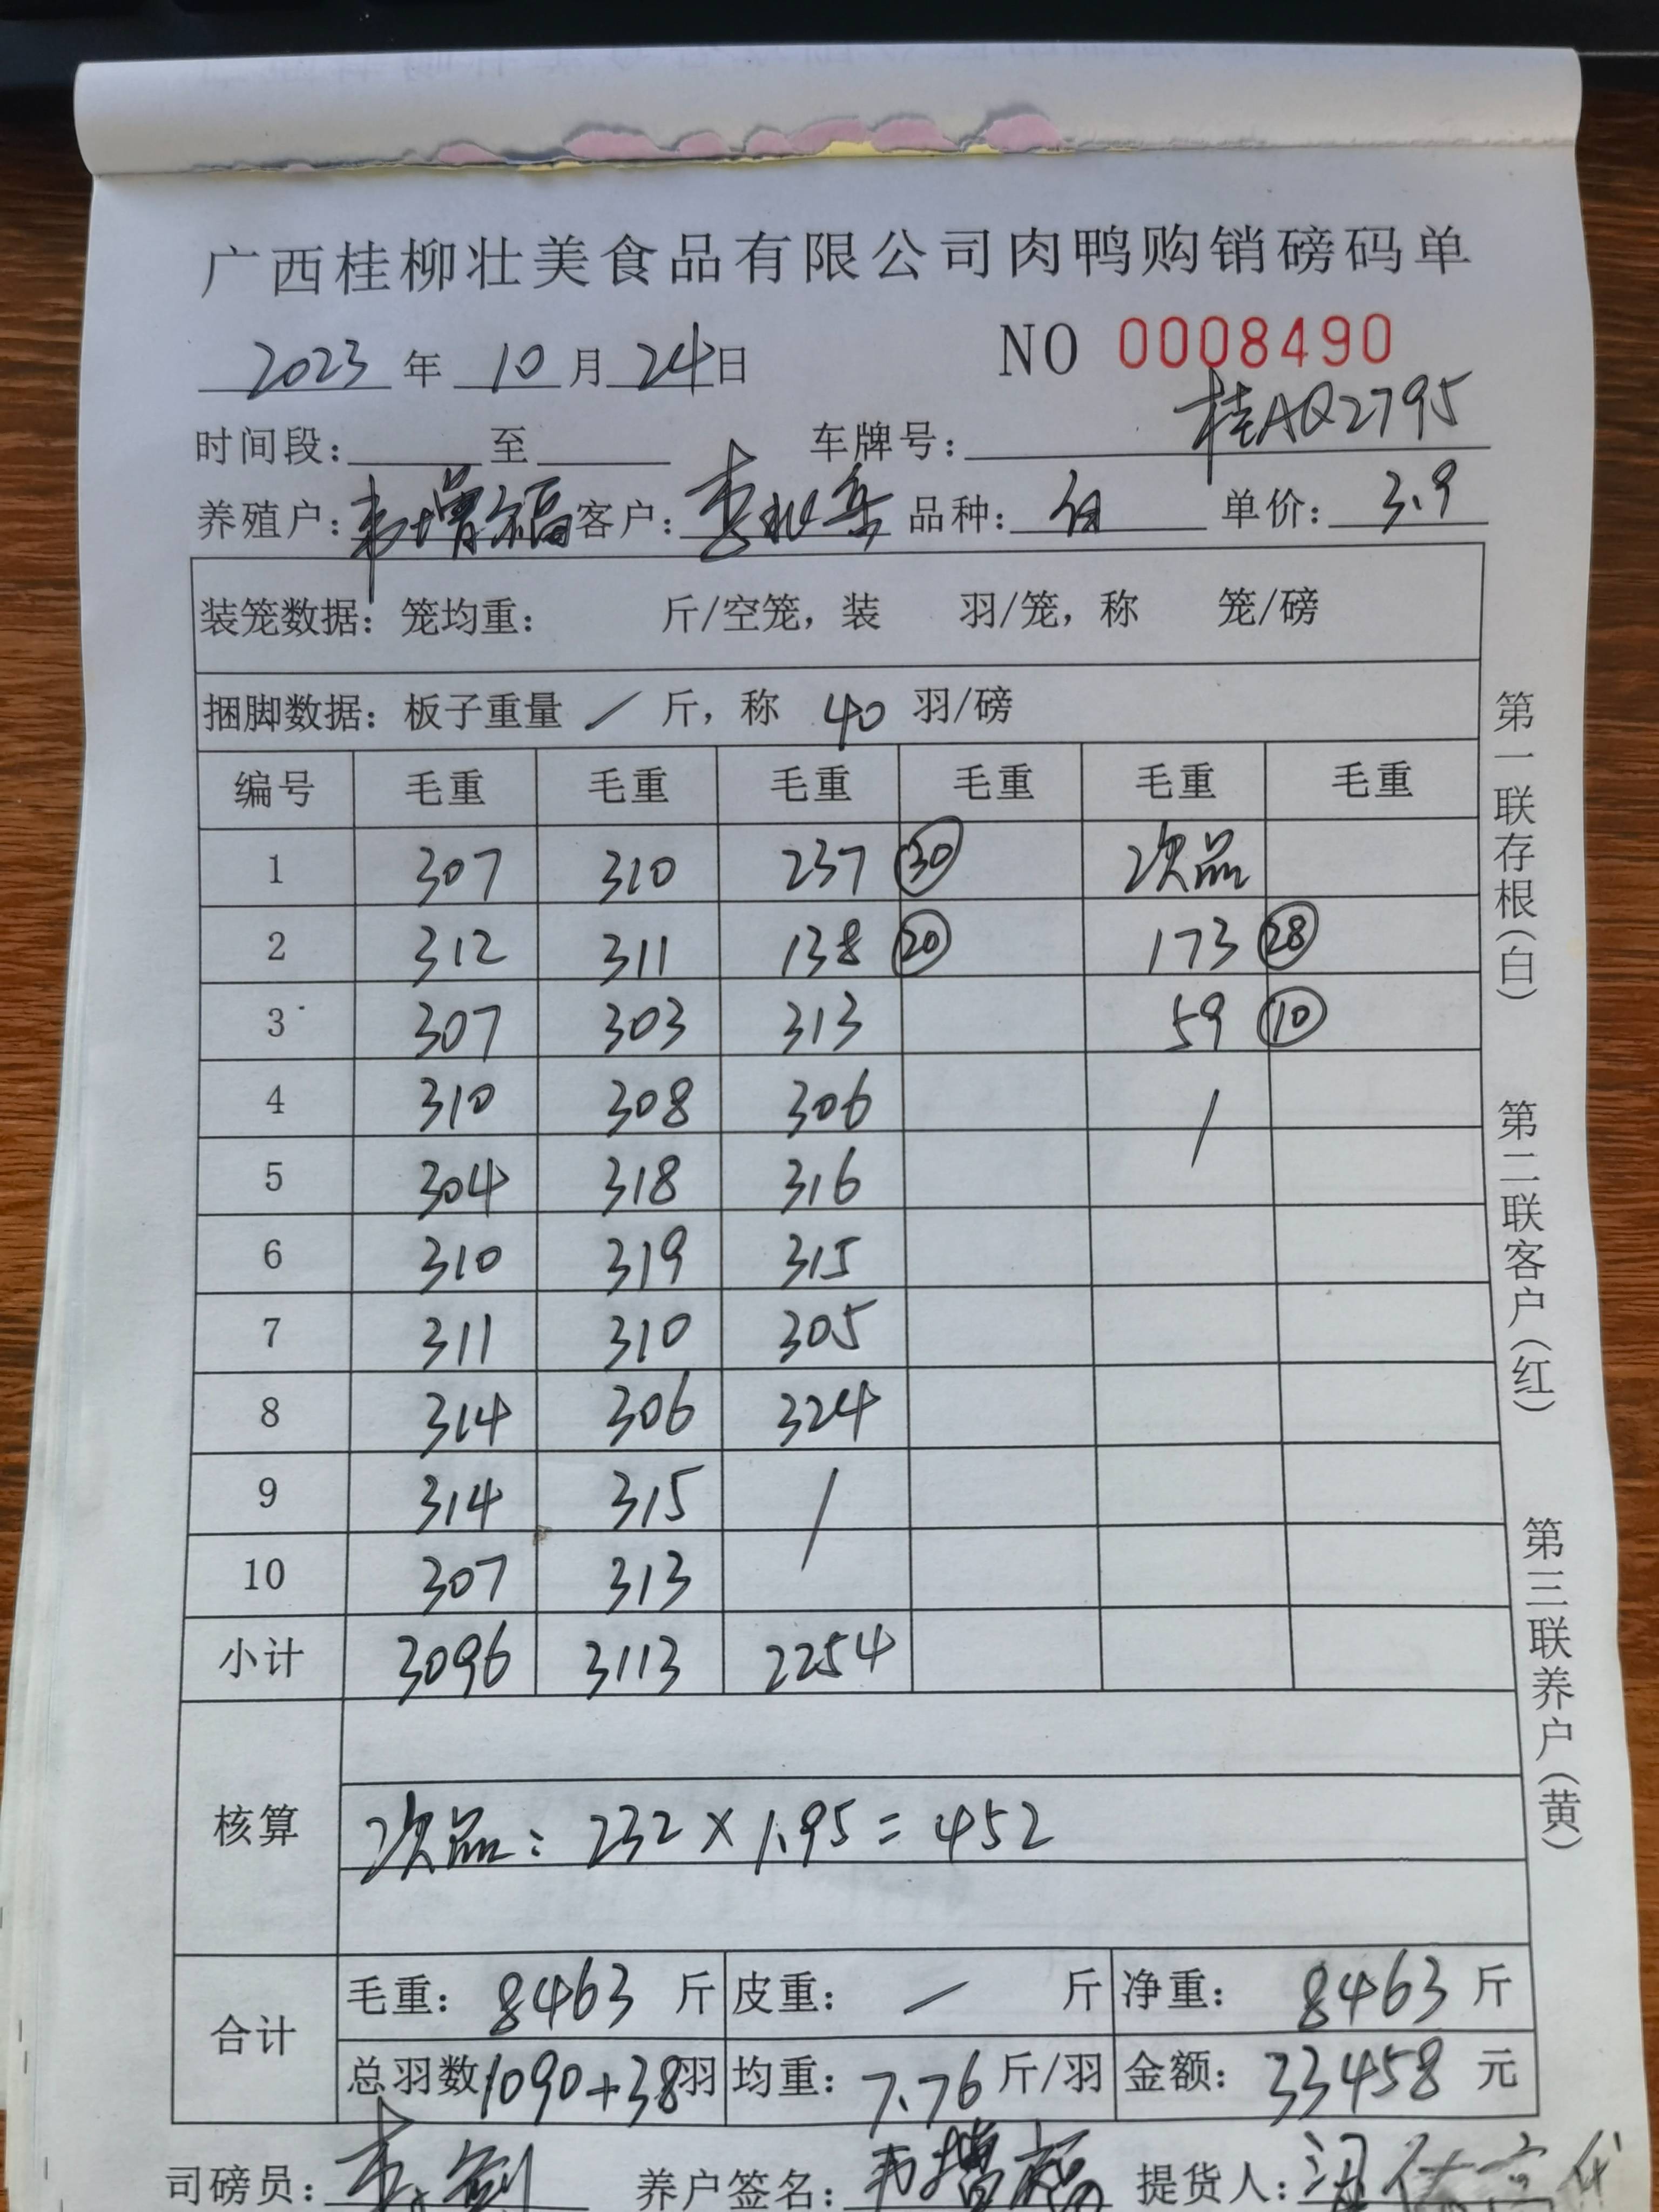 广西桂柳壮美食品有限公司肉鸭购销磅码单
2023年10月24日 NO 0008490
时间段: 至 车牌号: 桂AQ2795
养殖户: 韦增福 客户: 品种: 白 单价: 3.9
装笼数据: 笼均重: 斤/空笼, 装 羽/笼, 称 笼/磅
捆脚数据: 板子重量 / 斤, 称 40 羽/磅
编号 毛重 毛重 毛重 毛重 毛重 毛重
1 307 310 237 30 次品
2 312 311 138 20 173 28
3 307 303 313 59 10
4 310 308 306 /
5 304 318 316
6 310 319 315
7 311 310 305
8 314 306 324
9 314 315 /
10 307 313
小计 3096 3113 2254
核算
次品: 232×1.95=452
合计
毛重: 8463 斤 皮重: — 斤 净重: 8463 斤
总羽数 1090+38 羽 均重: 7.76 斤/羽 金额: 33458 元
司磅员: 养户签名: 韦增福 提货人:
第一联存根(白)
第二联客户(红)
第三联养户(黄)